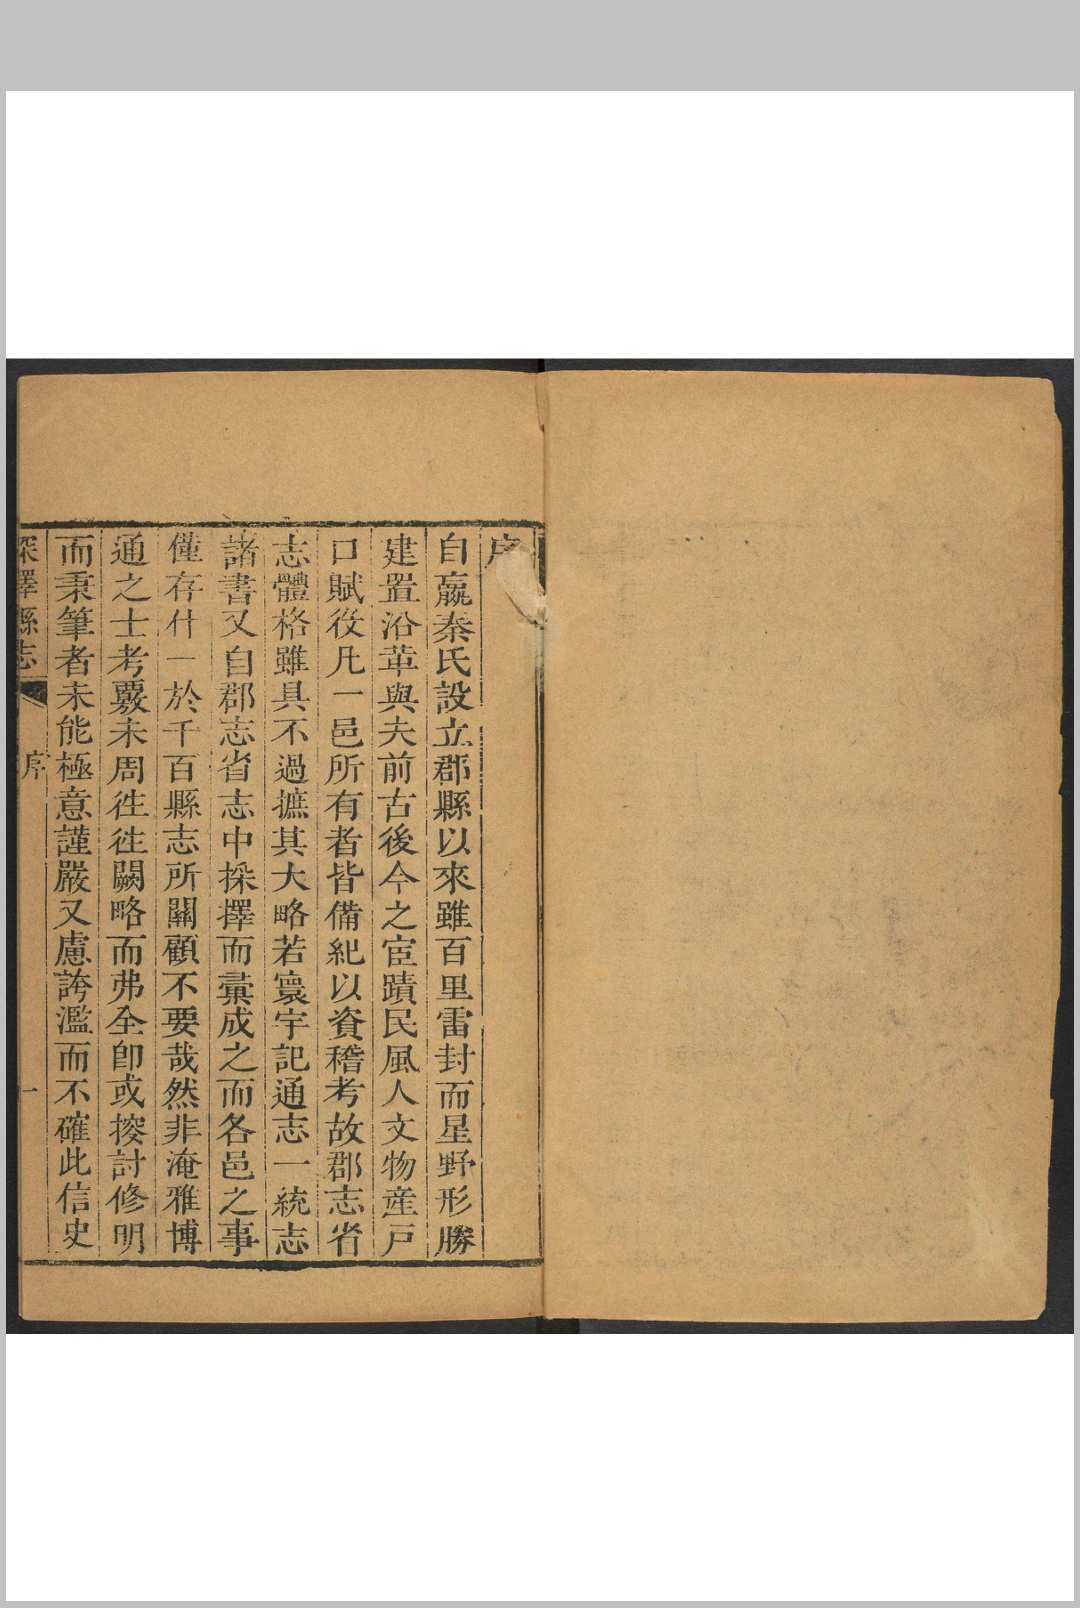 序
自嬴秦氏設立郡縣以來雖百里雷封而星野形勝
建置沿革與夫前古後今之宦蹟民風人文物産戸
口賦役凡一邑所有者皆備紀以資稽考故郡志省
志體格雖具不過摭其大略若寰宇記通志一統志
諸書又自郡志省志中採擇而彚成之而各邑之事
僅存什一於千百縣志所關顧不要哉然非淹雅博
通之士考覈未周徃徃闕略而弗全卽或搜討修明
而秉筆者未能極意謹嚴又慮誇濫而不確此信史
深澤縣志 序 一